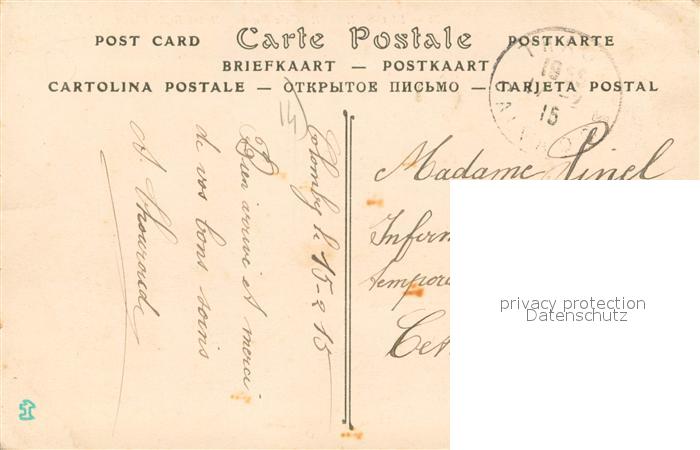 POST CARD Carte Postale POSTKARTE
BRIEFKAART — POSTKAART
CARTOLINA POSTALE — ОТКРЫТОЕ ПИСЬМО — TARJETA POSTAL
19
15
14
Colombey le 15-2 15
Bien arrivé et merci
de vos bons soins
A.
Madame Pinel
Infirm
tempor
privacy protection
Datenschutz